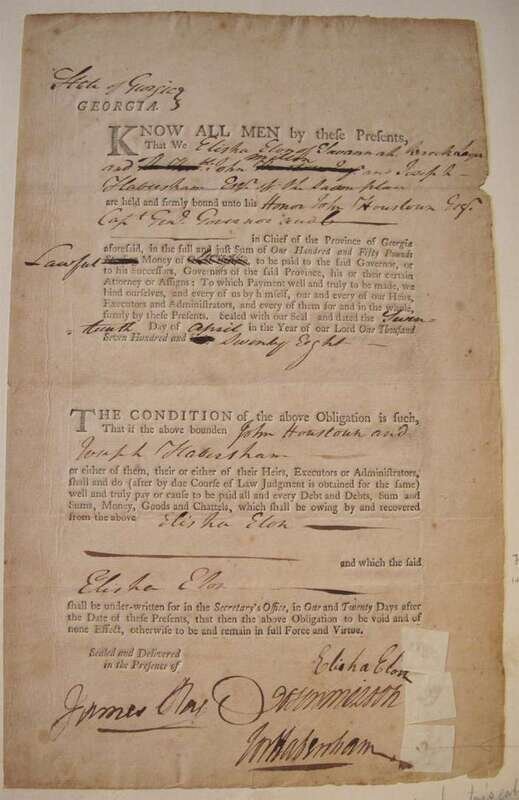 State of Georgia
GEORGIA
KNOW ALL MEN by these Presents,
That We Elisha Elon of Savannah
and John and Joseph
Habersham Esqrs of the same place
are held and firmly bound unto his Honor John Houstoun Esqr.
Capt. Genl. Governor and
in Chief of the Province of Georgia
aforesaid, in the full and just Sum of One Hundred and Fifty Pounds
Lawful Money of to be paid to the said Governor, or
to his Successors, Governors of the said Province, his or their certain
Attorney or Assigns: To which Payment well and truly to be made, we
bind ourselves, and every of us by himself, our and every of our Heirs,
Executors and Administrators, and every of them for and in the whole,
firmly by these Presents. Sealed with our Seal and dated the Seven-
teenth Day of April in the Year of our Lord One Thousand
Seven Hundred and Seventy Eight
THE CONDITION of the above Obligation is such,
That if the above bounden John Houstoun and
Joseph Habersham
or either of them, their or either of their Heirs, Executors or Administrators,
shall and do (after by due Course of Law Judgment is obtained for the same)
well and truly pay or cause to be paid all and every Debt and Debts, Sum and
Sums, Money, Goods and Chattels, which shall be owing by and recovered
from the above Elisha Elon
and which the said
Elisha Elon
shall be under-written for in the Secretary's Office, in One and Twenty Days after
the Date of these Presents, that then the above Obligation to be void and of
none Effect, otherwise to be and remain in full Force and Virtue.
Sealed and Delivered
in the Presence of
Elisha Elon
James
Jos Habersham